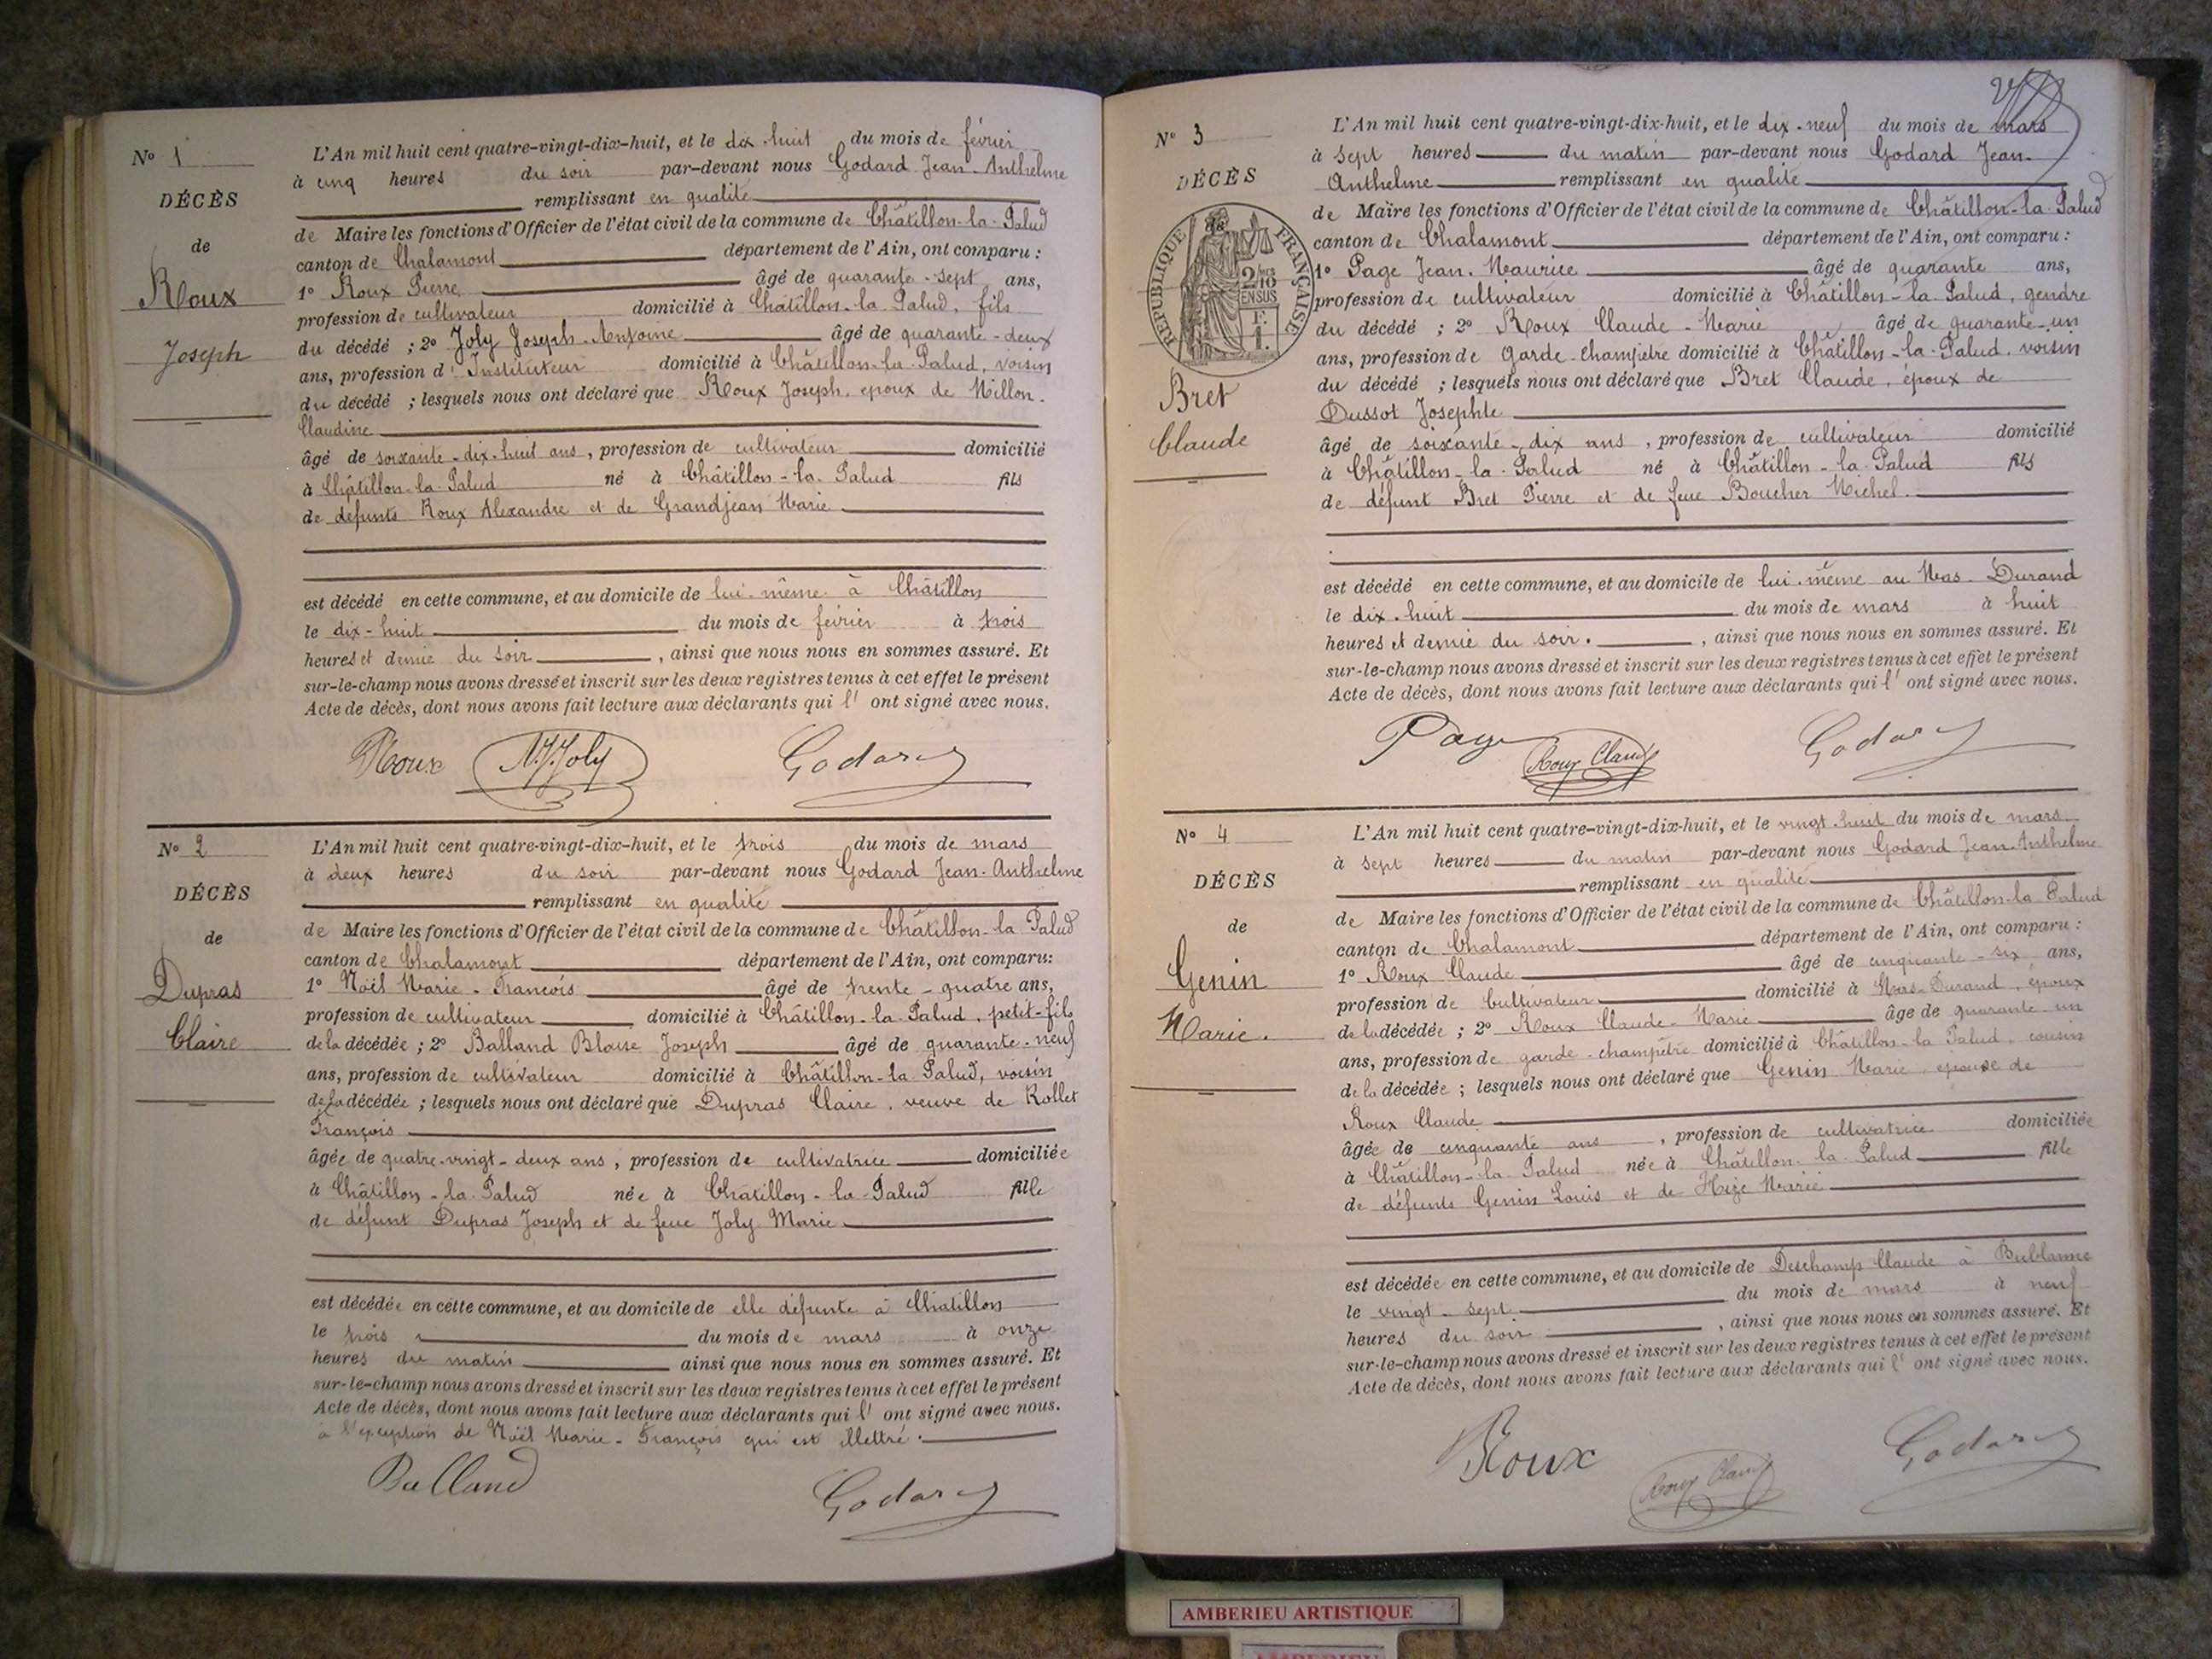 N° 1
DÉCÈS
de
Roux
Joseph
L'An mil huit cent quatre-vingt-dix-huit, et le dix-huit du mois de février
à cinq heures du soir par-devant nous Godard Jean-Anthelme
remplissant en qualité
de Maire les fonctions d'Officier de l'état civil de la commune de Châtillon-la-Palud
canton de Chalamont département de l'Ain, ont comparu :
1° Roux Pierre âgé de quarante-sept ans,
profession de cultivateur domicilié à Châtillon-la-Palud, fils
du décédé ; 2° Joly Joseph-Antoine âgé de quarante-deux
ans, profession d'Instituteur domicilié à Châtillon-la-Palud, voisin
du décédé ; lesquels nous ont déclaré que Roux Joseph, époux de Millon
Claudine
âgé de soixante-dix-huit ans, profession de cultivateur domicilié
à Châtillon-la-Palud né à Châtillon-la-Palud fils
de défunts Roux Alexandre et de Grandjean Marie
est décédé en cette commune, et au domicile de lui-même à Châtillon
le dix-huit du mois de février à trois
heures et demie du soir, ainsi que nous nous en sommes assuré. Et
sur-le-champ nous avons dressé et inscrit sur les deux registres tenus à cet effet le présent
Acte de décès, dont nous avons fait lecture aux déclarants qui l' ont signé avec nous.
Roux Joly Godard
N° 2
DÉCÈS
de
Dupras
Claire
L'An mil huit cent quatre-vingt-dix-huit, et le trois du mois de mars
à deux heures du soir par-devant nous Godard Jean-Anthelme
remplissant en qualité
de Maire les fonctions d'Officier de l'état civil de la commune de Châtillon-la-Palud
canton de Chalamont département de l'Ain, ont comparu:
1° Noël Marie-François âgé de trente-quatre ans,
profession de cultivateur domicilié à Châtillon-la-Palud, petit-fils
de la décédée ; 2° Balland Blaise Joseph âgé de quarante-neuf
ans, profession de cultivateur domicilié à Châtillon-la-Palud, voisin
de la décédée ; lesquels nous ont déclaré que Dupras Claire, veuve de Rollet
François
âgée de quatre-vingt-deux ans, profession de cultivatrice domiciliée
à Châtillon-la-Palud née à Châtillon-la-Palud fille
de défunt Dupras Joseph et de feue Joly Marie
est décédée en cette commune, et au domicile de elle défunte à Châtillon
le trois du mois de mars à onze
heures du matin ainsi que nous nous en sommes assuré. Et
sur-le-champ nous avons dressé et inscrit sur les deux registres tenus à cet effet le présent
Acte de décès, dont nous avons fait lecture aux déclarants qui l' ont signé avec nous.
à l'exception de Noël Marie-François qui est illettré.
Balland Godard
N° 3
DÉCÈS
RÉPUBLIQUE FRANÇAISE
2/10
EN SUS
F.
1.
Bret
Claude
L'An mil huit cent quatre-vingt-dix-huit, et le dix-neuf du mois de mars
à sept heures du matin par-devant nous Godard Jean-
Anthelme remplissant en qualité
de Maire les fonctions d'Officier de l'état civil de la commune de Châtillon-la-Palud
canton de Chalamont département de l'Ain, ont comparu :
1° Page Jean-Maurice âgé de quarante ans,
profession de cultivateur domicilié à Châtillon-la-Palud, gendre
du décédé ; 2° Roux Claude-Marie âgé de quarante-un
ans, profession de Garde-champêtre domicilié à Châtillon-la-Palud, voisin
du décédé ; lesquels nous ont déclaré que Bret Claude, époux de
Dussot Josephte
âgé de soixante-dix ans, profession de cultivateur domicilié
à Châtillon-la-Palud né à Châtillon-la-Palud fils
de défunt Bret Pierre et de feue Boucher Michel.
est décédé en cette commune, et au domicile de lui-même au Mas-Durand
le dix-huit du mois de mars à huit
heures et demie du soir., ainsi que nous nous en sommes assuré. Et
sur-le-champ nous avons dressé et inscrit sur les deux registres tenus à cet effet le présent
Acte de décès, dont nous avons fait lecture aux déclarants qui l' ont signé avec nous.
Page Roux Claude Godard
N° 4
DÉCÈS
de
Genin
Marie.
L'An mil huit cent quatre-vingt-dix-huit, et le vingt-huit du mois de mars
à sept heures du matin par-devant nous Godard Jean-Anthelme
remplissant en qualité
de Maire les fonctions d'Officier de l'état civil de la commune de Châtillon-la-Palud
canton de Chalamont département de l'Ain, ont comparu :
1° Roux Claude âgé de cinquante-six ans,
profession de Cultivateur domicilié à Mas-Durand, époux
de la décédée ; 2° Roux Claude-Marie âgé de quarante-un
ans, profession de garde-champêtre domicilié à Châtillon-la-Palud, cousin
de la décédée ; lesquels nous ont déclaré que Genin Marie, épouse de
Roux Claude
âgée de cinquante ans, profession de cultivatrice domiciliée
à Châtillon-la-Palud née à Châtillon-la-Palud fille
de défunts Genin Louis et de Marie
est décédée en cette commune, et au domicile de Deschamp Claude à Bublanne
le vingt-sept du mois de mars à neuf
heures du soir, ainsi que nous nous en sommes assuré. Et
sur-le-champ nous avons dressé et inscrit sur les deux registres tenus à cet effet le présent
Acte de décès, dont nous avons fait lecture aux déclarants qui l' ont signé avec nous.
Roux Roux Claude Godard
AMBERIEU ARTISTIQUE
AMBERIEU